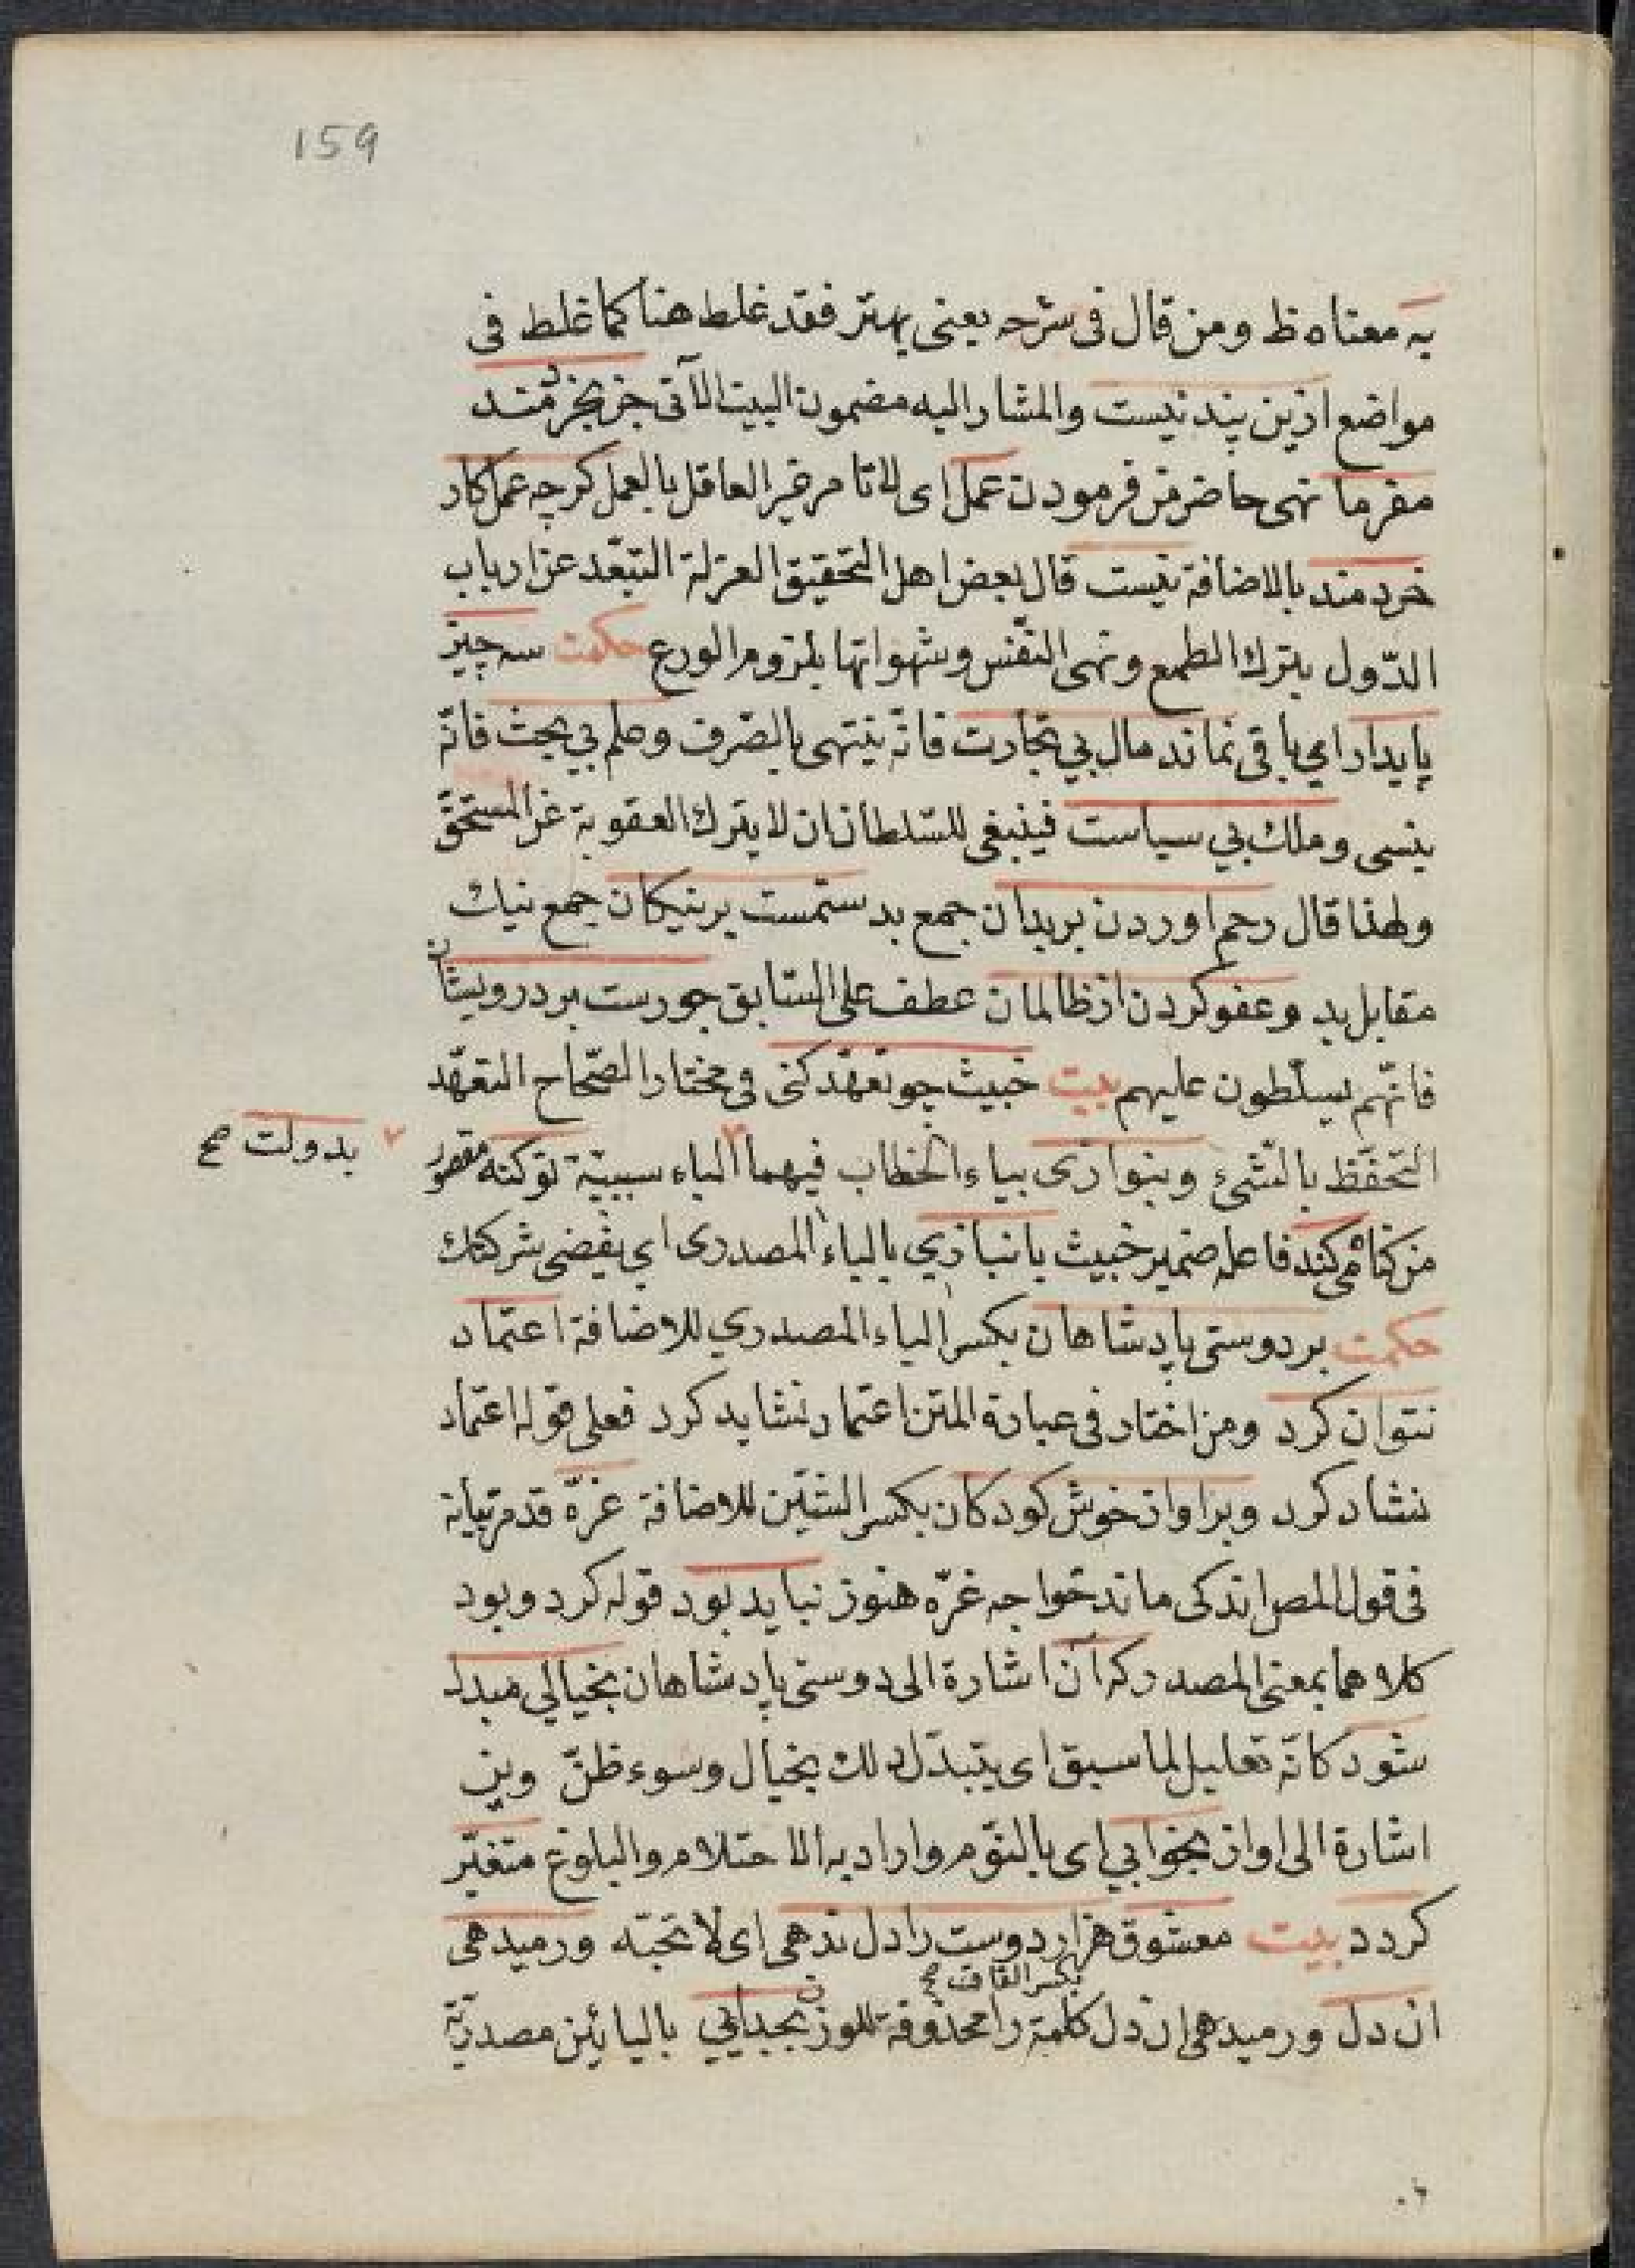 159
به معناه ظ ومن قال فى شرحه يعنى بهتر فقد غلط هنا كما غلط فى
مواضع ازين پند نيست والمشار اليه مضمون البيت الآتى جز بخردمند
مفرما نهى حاضر من فرمودن عمل اى لا تامر غير العاقل بالعمل كرچه عمل كار
خردمند بالاضافة نيست قال بعض اهل التحقيق العزلة التبعّد عن ارباب
الدّول بترك الطمع ونهى النّفس وشهواتها بلزوم الورع حكمت سه چيز
پايدار اي باقى نماند مال بي تجارت فانّه ينتهى بالصّرف وعلم بي بحث فانّه
ينسى وملك بي سياست فينبغى للسّلطان ان لا يترك العقوبة عن المستحقّ
ولهذا قال رحم اوردن بر بدان جمع بد ستمست بر نيكان جمع نيك
مقابل بد وعفو كردن از ظالمان عطف على السّابق جورست بر درويشان
فانّهم يسلّطون عليهم بيت خبيث چو تعهّد كنى فى مختار الصّحاح التعهّد
التحفّظ بالشّىء وبنوازى بياء الخطاب فيهما الباء سببيّة تو كنه مقصور
بدولت صح
من كناه مى كند فاعله ضمير خبيث بانبازي بالياء المصدرى اي يفضى شركتك
حكمت بر دوستى پادشاهان بكسر الياء المصدري للاضافة اعتماد
نتوان كرد ومن اختار فى عبارة المتن اعتماد نشايد كرد فعلى قوله اعتماد
نشاد كرد وبر اواز خوش كودكان بكسر الشّين للاضافة غرّه قد مرّ بيانه
فى قول المص اندكى ماند خواجه غرّه هنوز نبايد بود قوله كرد وبود
كلاهما بمعنى المصدر كه آن اشارة الى دوستى پادشاهان بخيالي مبدل
شود كانّه تعليل لما سبق اى يتبدّل ذلك بخيال وسوء ظنّ واين
اشارة الى اواز بخوابي اى بالنّوم واراد به الاحتلام والبلوغ متغيّر
كردد بيت معشوق هزار دوست را دل ندهى اى لا تحبّه ور ميدهى
بكسر القاف صح
ان دل ور ميدهى ان دل كلمة را محذوفة للوزن بجدايي باليائين مصدريّة